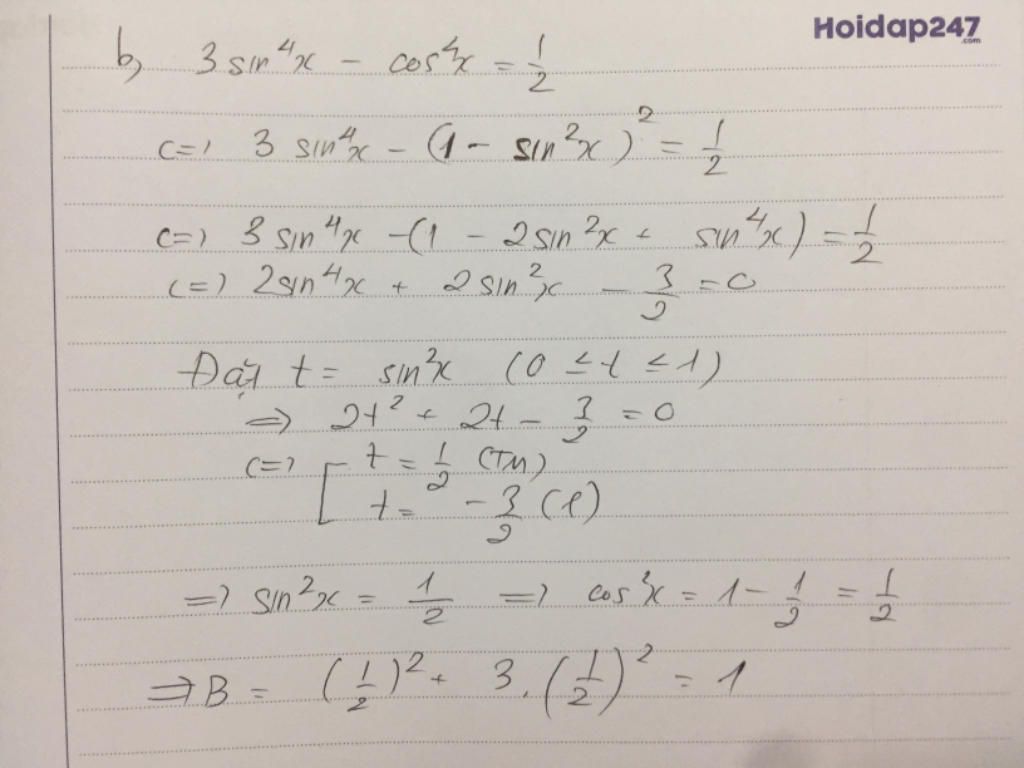 Hoidap247
.com
b, 3 sin⁴x - cos⁴x = 1/2
<=> 3 sin⁴x - (1 - sin²x)² = 1/2
<=> 3 sin⁴x - (1 - 2 sin²x + sin⁴x) = 1/2
<=> 2 sin⁴x + 2 sin²x - 3/2 = 0
Đặt t = sin²x (0 ≤ t ≤ 1)
=> 2t² + 2t - 3/2 = 0
<=> [ t = 1/2 (TM)
t = -3/2 (l)
=> sin²x = 1/2 => cos²x = 1 - 1/2 = 1/2
=> B = (1/2)² + 3.(1/2)² = 1